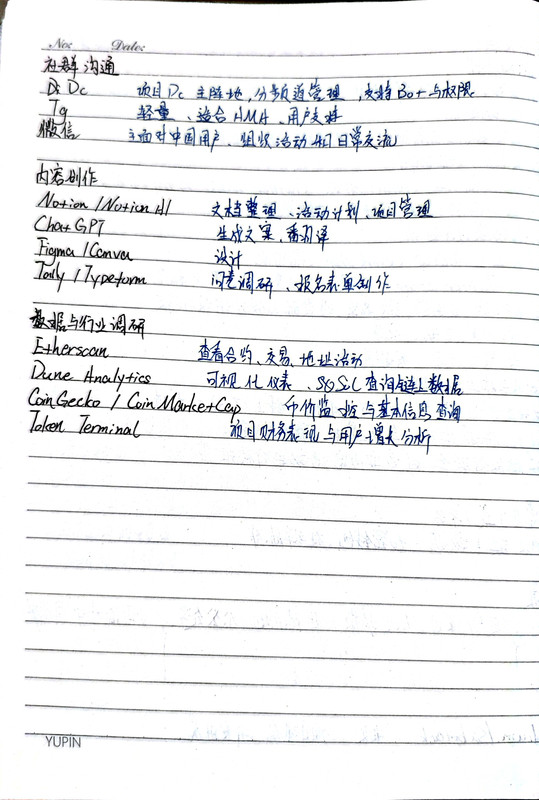 No: Date:
社群沟通
Dc 项目Dc 主阵地,分频道管理,支持Bot与权限
Tg 轻量、适合AMA、用户支持
微信 主面对中国用户、组织活动和日常交流
内容创作
Notion / Notion AI 文档整理、活动计划、项目管理
ChatGPT 生成文案、翻译
Figma / Canva 设计
Tally / Typeform 问卷调研、报名表单制作
数据与行业调研
Etherscan 查看合约、交易、地址活动
Dune Analytics 可视化仪表、SQL查询链上数据
CoinGecko / CoinMarketCap 币价监控与基本信息查询
Token Terminal 项目财务表现与用户增长分析
YUPIN